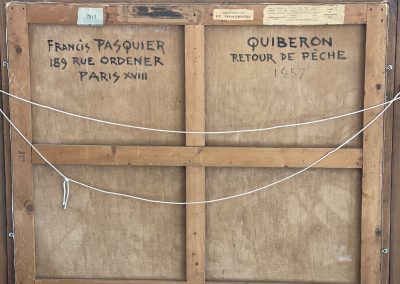 Francis PASQUIER
189 RUE ORDENER
PARIS XVIII
QUIBERON
RETOUR DE PÊCHE
1957